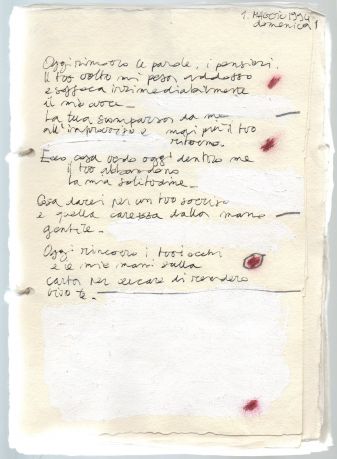 1. MAGGIO 1994
domenica
Oggi rincorro le parole, i pensieri.
Il tuo volto mi pesa addosso
e soffoca irrimediabilmente
il mio cuore_
La tua scomparsa da me
all'improvviso e mai più il tuo
ritorno.
Ecco cosa vedo oggi dentro me
il tuo abbandono
La mia solitudine_
Cosa darei per un tuo sorriso
e quella carezza dalla mano
gentile_
Oggi rincorro i tuoi occhi
e le mie mani sulla
carta per cercare di rendere
vivo te_